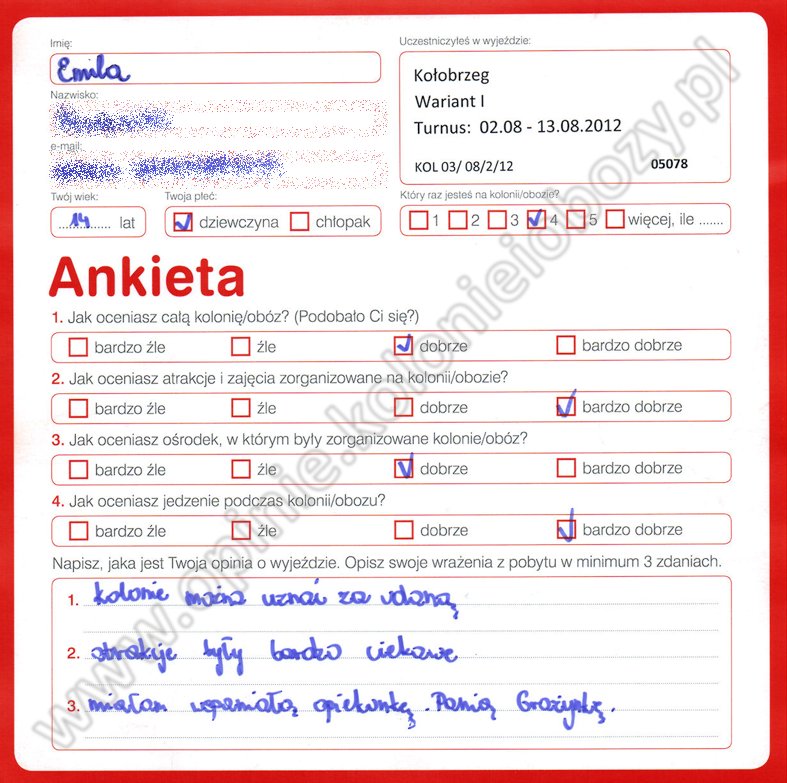 Imię:
Emila
Uczestniczyłeś w wyjeździe:
Kołobrzeg
Wariant I
Turnus: 02.08 - 13.08.2012
KOL 03/ 08/2/12 05078
Nazwisko:
e-mail:
Twój wiek:
14 lat
Twoja płeć:
dziewczyna chłopak
Który raz jesteś na kolonii/obozie?
1 2 3 4 5 więcej, ile .......
Ankieta
1. Jak oceniasz całą kolonię/obóz? (Podobało Ci się?)
bardzo źle źle dobrze bardzo dobrze
2. Jak oceniasz atrakcje i zajęcia zorganizowane na kolonii/obozie?
bardzo źle źle dobrze bardzo dobrze
3. Jak oceniasz ośrodek, w którym były zorganizowane kolonie/obóz?
bardzo źle źle dobrze bardzo dobrze
4. Jak oceniasz jedzenie podczas kolonii/obozu?
bardzo źle źle dobrze bardzo dobrze
Napisz, jaka jest Twoja opinia o wyjeździe. Opisz swoje wrażenia z pobytu w minimum 3 zdaniach.
1. kolonie można uznać za udaną
2. atrakcje były bardzo ciekawe
3. miałam wspaniałą opiekunkę. Panią Grażynkę.
www.opinie.kolonieiobozy.pl